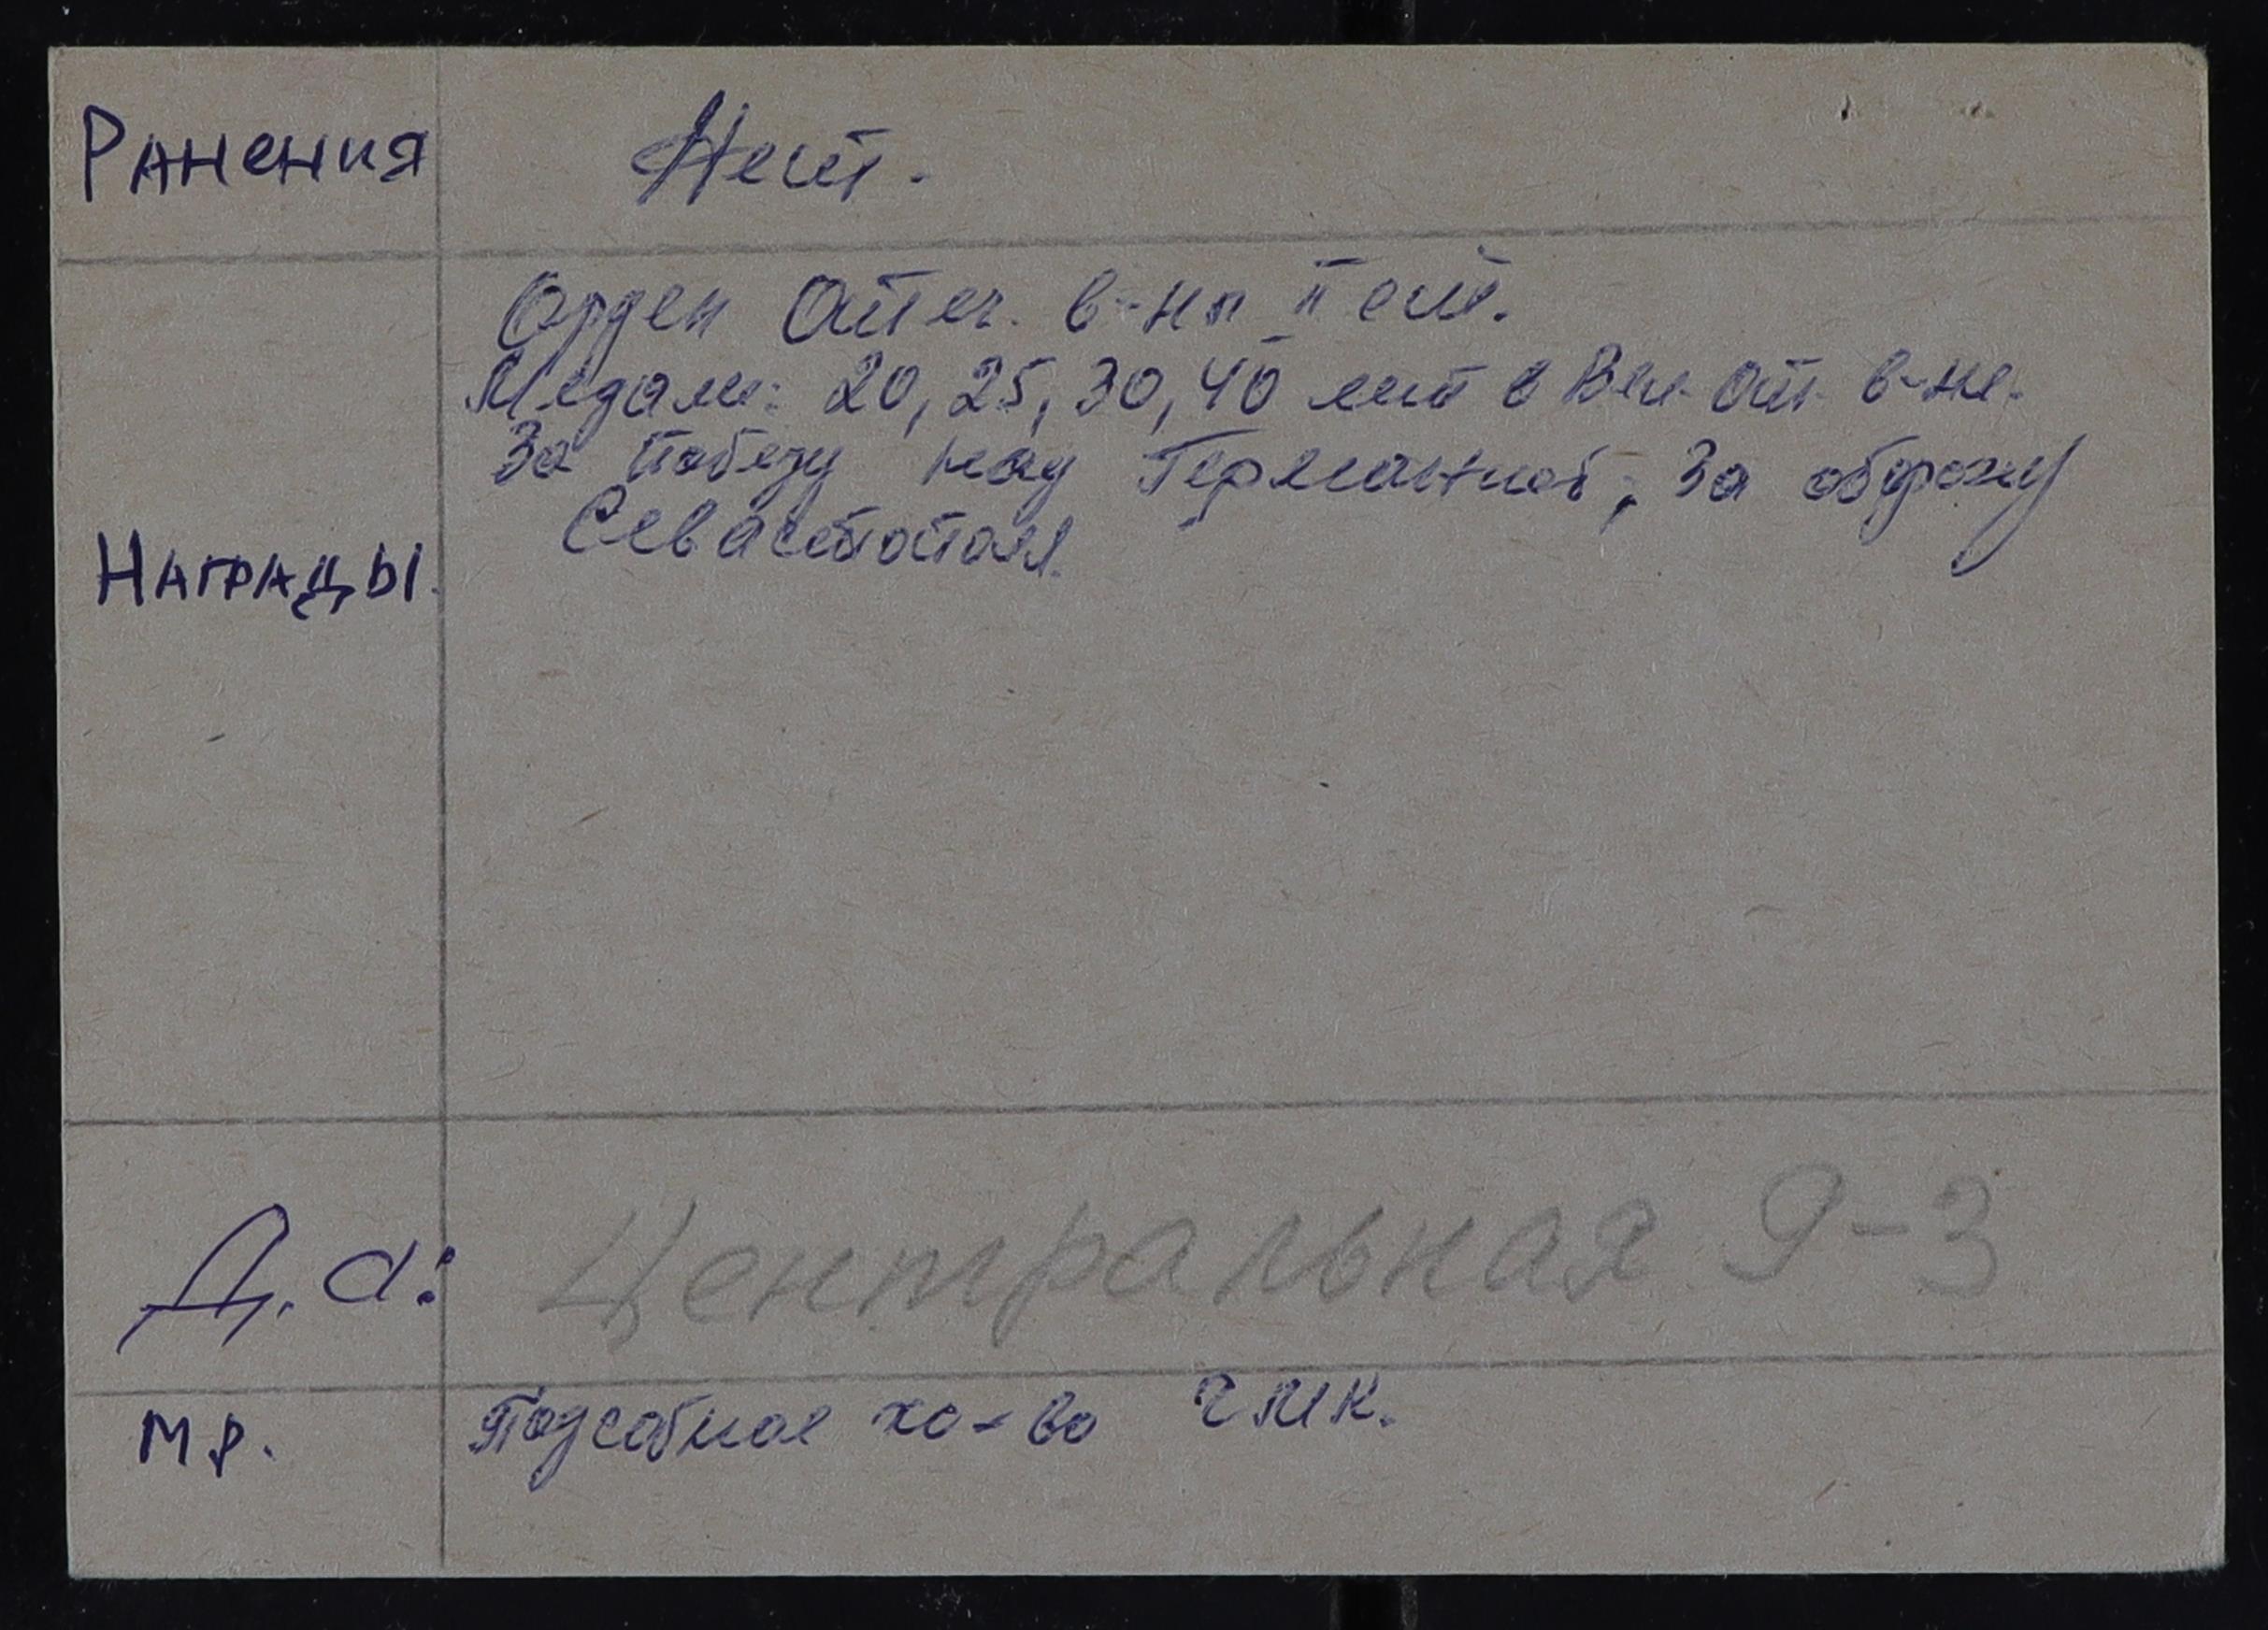 Ранения Нет.
Орден Отеч. в-ны II ст.
Медали: 20, 25, 30, 40 лет в Вел. От. в-не.
За победу над Германией; За оборону
Севастополя.
Награды.
Д.а: Центральная 9-3
М р. Подсобное хо-во ЧМК.